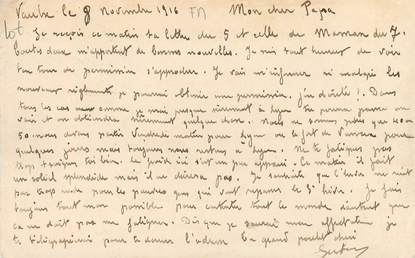 Vaulx le 8 Novembre 1916 FM Mon cher Papa
Je reçois ce matin ta lettre du 5 et celle de Maman du 7.
toutes deux m'apportent de bonnes nouvelles. Je suis tout heureux de voir
ton tour de permission s'approcher. Je vais m'informer si malgré les
nouveaux règlements je pourrai obtenir une permission. j'en doute!. Dans
tous les cas comme je serai presque sûrement à Lyon tu pourras passer me
voir et on obtiendra sûrement quelque chose. Nous ne sommes plus que
50 nous devons partir Vendredi matin pour Lyon ou le fort de Vancia pour
quelques jours mais toujours nous restons à Lyon. Ne te fatigues pas
trop soignes toi bien. Le froid ici s'est un peu apaisé. Ce matin il fait
un soleil splendide mais il ne durera pas. Je souhaite que l'hiver ne soit
pas trop rude pour les pauvres gens qui vont repasser le 3e hiver. Je fais
toujours tout mon possible pour contenter tout le monde d'autant que
ça ne doit pas me fatiguer. Dès que je saurai mon affectation je
te télégraphierai pour te donner l'adresse. Ton grand